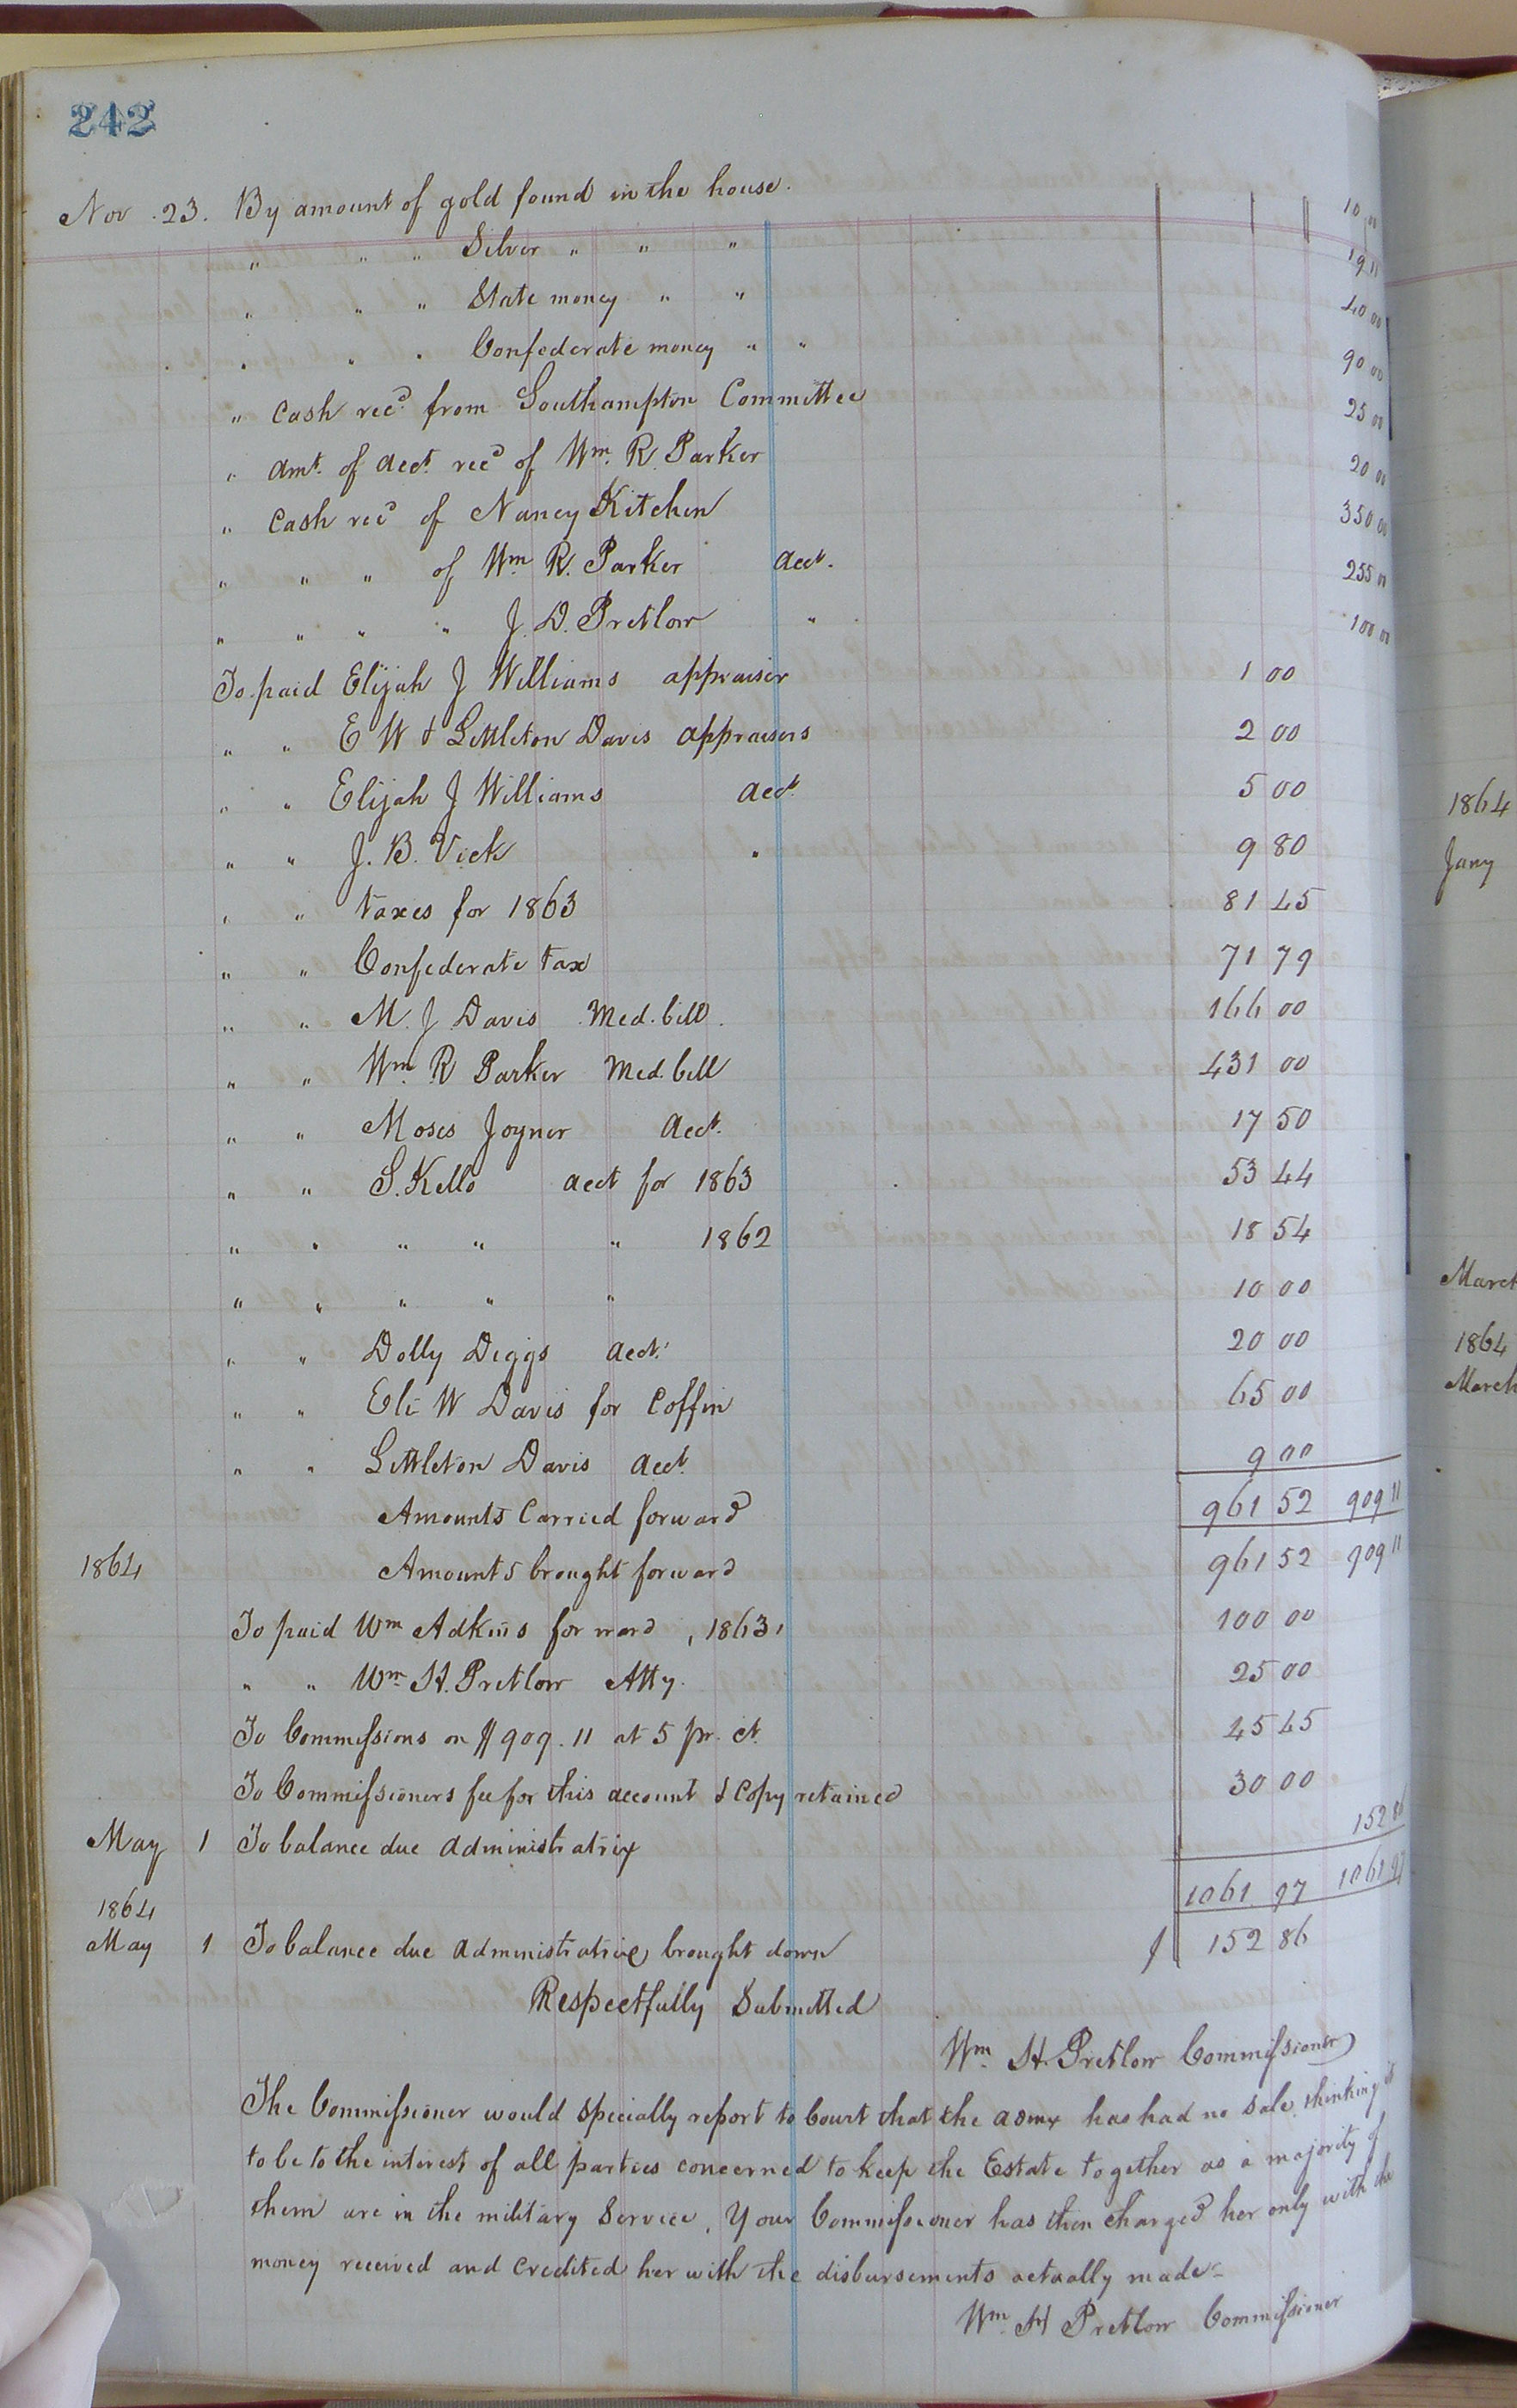 242
Nov. 23. By amount of gold found in the house. 10 00
" " " Silver " " " 19 11
" " " State money " " 40 00
" " " Confederate money " " 90 00
" Cash recd from Southampton Committee 25 00
" Amt. of acct. recd of Wm. R. Parker 20 00
" Cash recd of Nancy Kitchen 350 00
" " " of Wm R. Parker acct. 255 00
" " " " J. D. Pretlow " 100 00
To paid Elijah J Williams appraiser 1 00
" " E W & Littleton Davis appraisers 2 00
" " Elijah J Williams acct. 5 00
" " J. B. Vick " 9 80
" " taxes for 1863 81 45
" " Confederate tax 71 79
" " M. J Davis Med. bill. 166 00
" " Wm. R Parker Med. bill 431 00
" " Moses Joyner acct. 17 50
" " S. Kello acct for 1863 53 44
" " " " " 1862 18 54
" " " " " 10 00
" " Dolly Diggs acct. 20 00
" " Eli W Davis for Coffin 65 00
" " Littleton Davis acct. 9 00
Amounts Carried forward 961 52 909 11
1864 Amounts brought forward 961 52 909 11
To paid Wm Adkins for ward, 1863, 100 00
" " Wm. H. Pretlow Atty. 25 00
To Commissions on $909.11 at 5 pr. ct. 45 45
To Commissioners fee for this account & Copy retained 30 00
May 1 To balance due administratrix 152 86
1061 97 1061 97
1864
May 1 To balance due administratrix brought down $ 152 86
Respectfully Submitted
Wm. H. Pretlow Commissioner
The Commissioner would specially report to Court that the admx has had no sale, thinking it
to be to the interest of all parties concerned to keep the Estate together as a majority of
them are in the military Service. Your Commissioner has then charged her only with the
money received and credited her with the disbursements actually made.
Wm. H Pretlow Commissioner
1864
Jany
March
1864
March